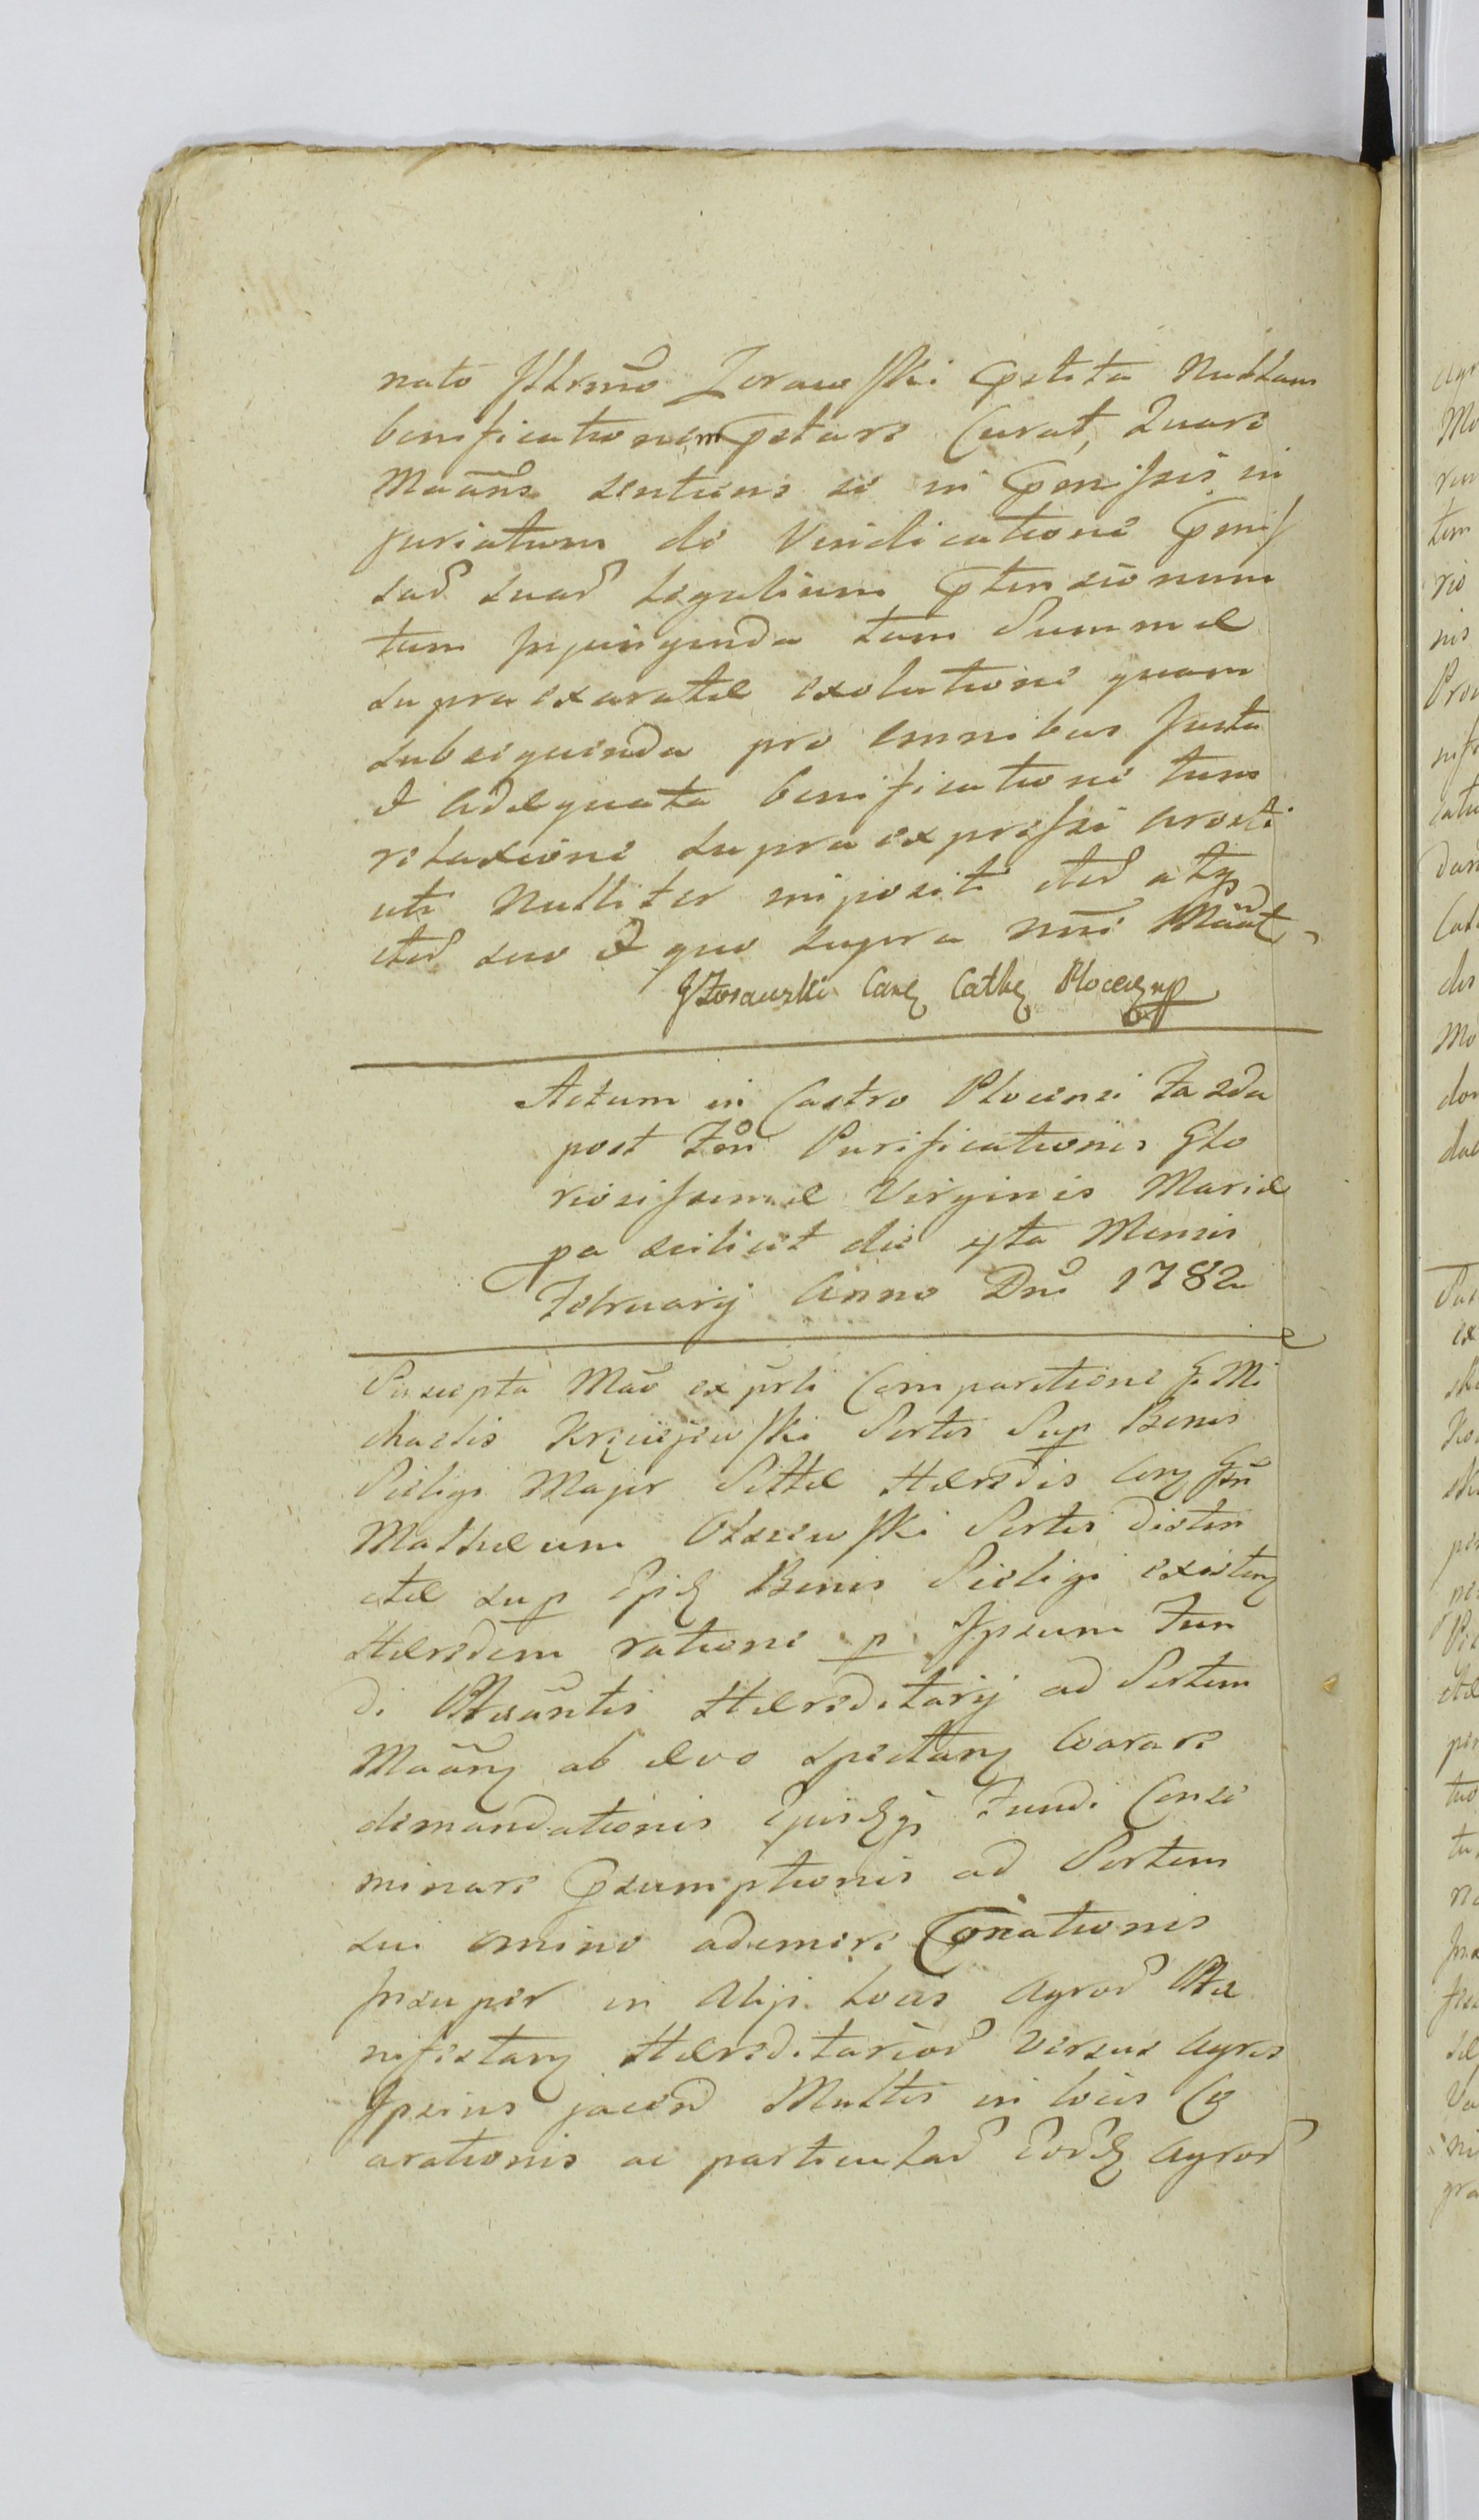 nato Illrmo Zorawski Pstita Nullam
bonificationem Pstare Curat, Quare
Maans sentiens se in Pmissis in
juriatum de Vindicatione Pmis
sar suar legalium Ptensionum
tum injungenda tum Summæ
supra exaratæ exolutione quam
subsequenda pro omnibus Justa
& Adæquata bonificatione tum
relaxione supra expressi aresti
uti Nulliter impositi iter atq
iter suo & quo supra nne Maat
JZorawski Can Cath Plocen mp
Actum in Castro Plocensi Fa 2da
post Fm Purificationis Glo
riosissimæ Virginis Mariæ
pa scilicet die 4ta Mensis
February Anno Dni 1782
Suscepta Mao ex prli Comparitione G. Mi
chaelis Krzciejewski Sortis Sup Bonis
Sieligi Major Sittæ Hæredis Con Gsm
Mathæum Olszewski Sortis distin
ctæ sup Bonis Sieligi existen
Hæredem ratione p Ipsum Fun
di Maantis Hæreditary ad Sortem
Maan ab ævo spectan Coarare
demandationis Fundi Conse
minare Psumptionis ad Sortem
sui omino ademere Conationis
Insuper in Alys locis Agror
nifestan Hæreditarior versus Agros
Ipsius jacen Multis in locis Co
arationis ac particular Agror